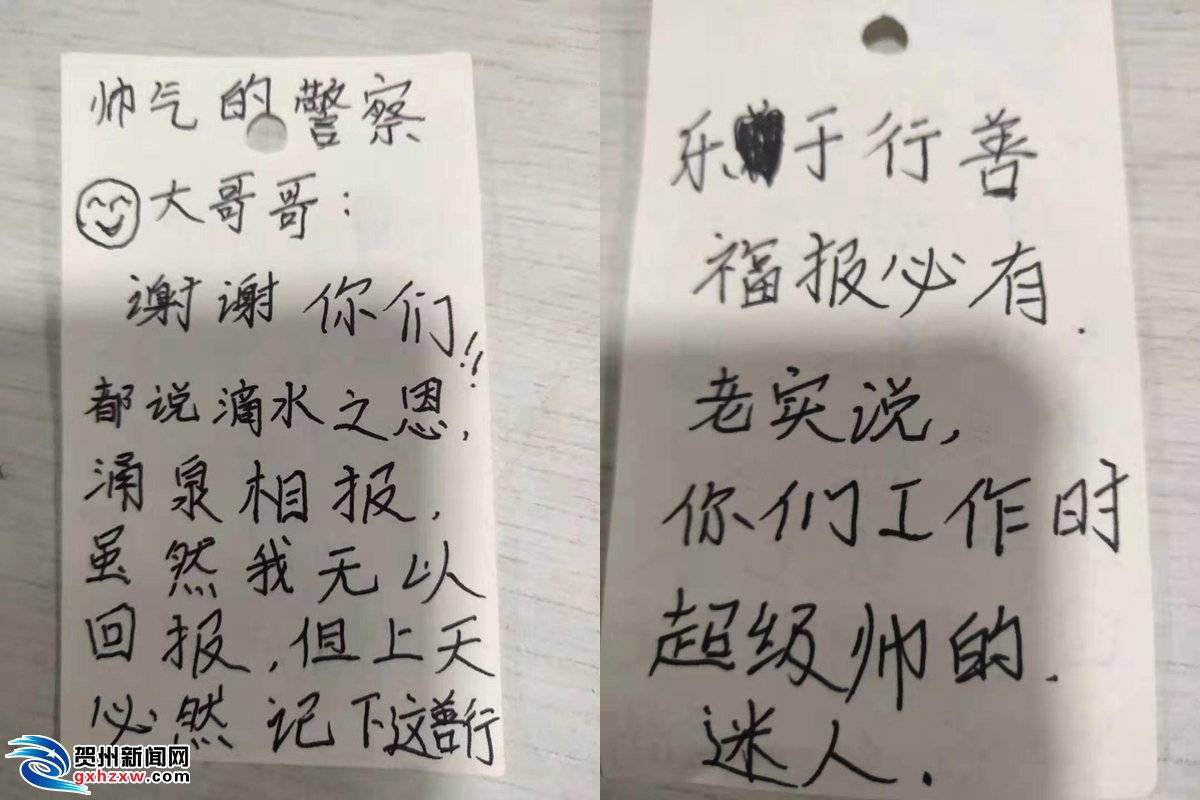 帅气的警察
大哥哥：
谢谢你们!!
都说滴水之恩,
涌泉相报,
虽然我无以
回报,但上天
必然记下这善行
乐于行善
福报必有.
老实说,
你们工作时
超级帅的.
迷人.
贺州新闻网
gxhzxw.com